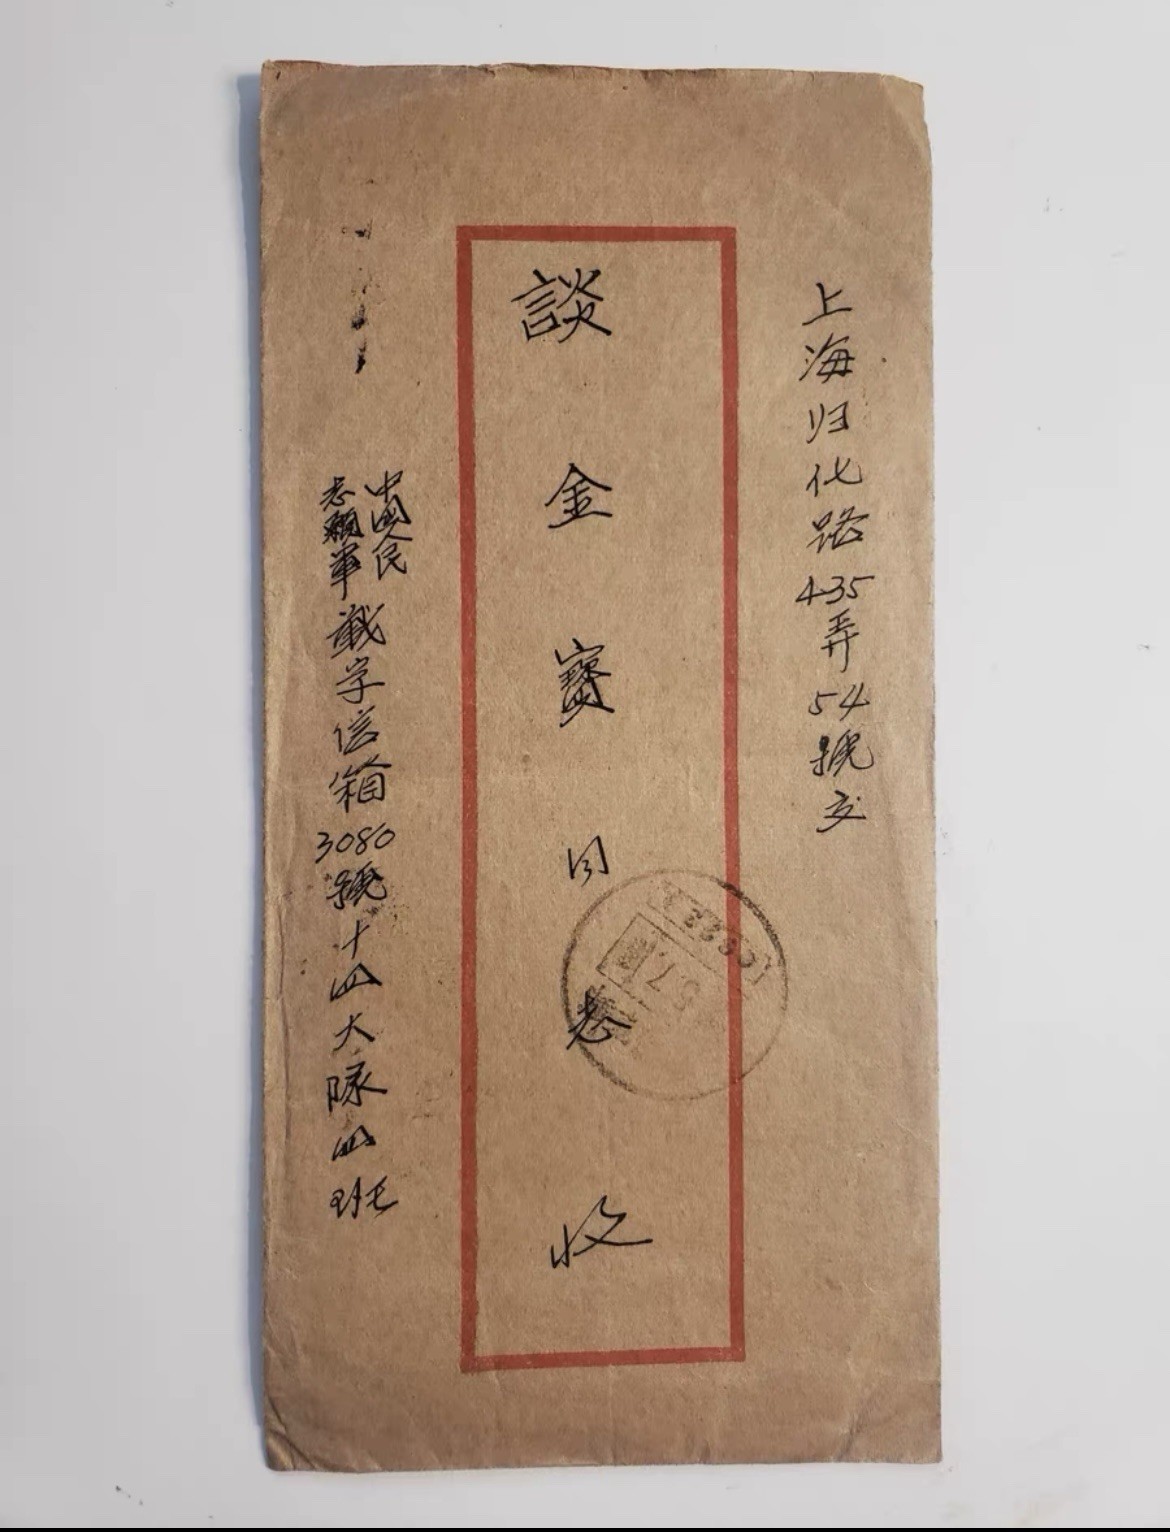 上海归化路435弄54號交
談金寶同志收
中國人民
志願軍
戴字信箱3080號十四大隊四班
57
6.22